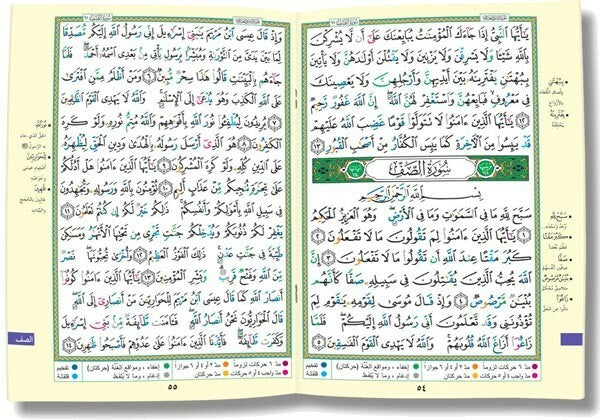 يَٰٓأَيُّهَا ٱلنَّبِىُّ إِذَا جَآءَكَ ٱلْمُؤْمِنَٰتُ يُبَايِعْنَكَ عَلَىٰٓ أَن لَّا يُشْرِكْنَ
بِٱللَّهِ شَيْـًٔا وَلَا يَسْرِقْنَ وَلَا يَزْنِينَ وَلَا يَقْتُلْنَ أَوْلَٰدَهُنَّ وَلَا يَأْتِينَ
بِبُهْتَٰنٍ يَفْتَرِينَهُۥ بَيْنَ أَيْدِيهِنَّ وَأَرْجُلِهِنَّ وَلَا يَعْصِينَكَ
فِى مَعْرُوفٍ فَبَايِعْهُنَّ وَٱسْتَغْفِرْ لَهُنَّ ٱللَّهَ إِنَّ ٱللَّهَ غَفُورٌ رَّحِيمٌ
١٢ يَٰٓأَيُّهَا ٱلَّذِينَ ءَامَنُوا۟ لَا تَتَوَلَّوْا۟ قَوْمًا غَضِبَ ٱللَّهُ عَلَيْهِمْ
قَدْ يَئِسُوا۟ مِنَ ٱلْءَاخِرَةِ كَمَا يَئِسَ ٱلْكُفَّارُ مِنْ أَصْحَٰبِ ٱلْقُبُورِ ١٣
سُورَةُ الصَّفِّ
بِسْمِ ٱللَّهِ ٱلرَّحْمَٰنِ ٱلرَّحِيمِ
سَبَّحَ لِلَّهِ مَا فِى ٱلسَّمَٰوَٰتِ وَمَا فِى ٱلْأَرْضِ وَهُوَ ٱلْعَزِيزُ ٱلْحَكِيمُ
١ يَٰٓأَيُّهَا ٱلَّذِينَ ءَامَنُوا۟ لِمَ تَقُولُونَ مَا لَا تَفْعَلُونَ ٢
كَبُرَ مَقْتًا عِندَ ٱللَّهِ أَن تَقُولُوا۟ مَا لَا تَفْعَلُونَ ٣
إِنَّ ٱللَّهَ يُحِبُّ ٱلَّذِينَ يُقَٰتِلُونَ فِى سَبِيلِهِۦ صَفًّا كَأَنَّهُم
بُنْيَٰنٌ مَّرْصُوصٌ ٤ وَإِذْ قَالَ مُوسَىٰ لِقَوْمِهِۦ يَٰقَوْمِ لِمَ
تُؤْذُونَنِى وَقَد تَّعْلَمُونَ أَنِّى رَسُولُ ٱللَّهِ إِلَيْكُمْ فَلَمَّا
زَاغُوٓا۟ أَزَاغَ ٱللَّهُ قُلُوبَهُمْ وَٱللَّهُ لَا يَهْدِى ٱلْقَوْمَ ٱلْفَٰسِقِينَ ٥
٥٤
وَإِذْ قَالَ عِيسَى ٱبْنُ مَرْيَمَ يَٰبَنِىٓ إِسْرَٰٓءِيلَ إِنِّى رَسُولُ ٱللَّهِ إِلَيْكُم مُّصَدِّقًا
لِّمَا بَيْنَ يَدَىَّ مِنَ ٱلتَّوْرَىٰةِ وَمُبَشِّرًۢا بِرَسُولٍ يَأْتِى مِنۢ بَعْدِى ٱسْمُهُۥٓ أَحْمَدُ فَلَمَّا
جَآءَهُم بِٱلْبَيِّنَٰتِ قَالُوا۟ هَٰذَا سِحْرٌ مُّبِينٌ ٦ وَمَنْ أَظْلَمُ مِمَّنِ ٱفْتَرَىٰ
عَلَى ٱللَّهِ ٱلْكَذِبَ وَهُوَ يُدْعَىٰٓ إِلَى ٱلْإِسْلَٰمِ وَٱللَّهُ لَا يَهْدِى ٱلْقَوْمَ ٱلظَّٰلِمِينَ
٧ يُرِيدُونَ لِيُطْفِـُٔوا۟ نُورَ ٱللَّهِ بِأَفْوَٰهِهِمْ وَٱللَّهُ مُتِمُّ نُورِهِۦ وَلَوْ كَرِهَ
ٱلْكَٰفِرُونَ ٨ هُوَ ٱلَّذِىٓ أَرْسَلَ رَسُولَهُۥ بِٱلْهُدَىٰ وَدِينِ ٱلْحَقِّ لِيُظْهِرَهُۥ
عَلَى ٱلدِّينِ كُلِّهِۦ وَلَوْ كَرِهَ ٱلْمُشْرِكُونَ ٩ يَٰٓأَيُّهَا ٱلَّذِينَ ءَامَنُوا۟ هَلْ أَدُلُّكُمْ
عَلَىٰ تِجَٰرَةٍ تُنجِيكُم مِّنْ عَذَابٍ أَلِيمٍ ١٠ تُؤْمِنُونَ بِٱللَّهِ وَرَسُولِهِۦ وَتُجَٰهِدُونَ
فِى سَبِيلِ ٱللَّهِ بِأَمْوَٰلِكُمْ وَأَنفُسِكُمْ ذَٰلِكُمْ خَيْرٌ لَّكُمْ إِن كُنتُمْ تَعْلَمُونَ ١١
يَغْفِرْ لَكُمْ ذُنُوبَكُمْ وَيُدْخِلْكُمْ جَنَّٰتٍ تَجْرِى مِن تَحْتِهَا ٱلْأَنْهَٰرُ وَمَسَٰكِنَ
طَيِّبَةً فِى جَنَّٰتِ عَدْنٍ ذَٰلِكَ ٱلْفَوْزُ ٱلْعَظِيمُ ١٢ وَأُخْرَىٰ تُحِبُّونَهَا نَصْرٌ
مِّنَ ٱللَّهِ وَفَتْحٌ قَرِيبٌ وَبَشِّرِ ٱلْمُؤْمِنِينَ ١٣ يَٰٓأَيُّهَا ٱلَّذِينَ ءَامَنُوا۟ كُونُوٓا۟
أَنصَارَ ٱللَّهِ كَمَا قَالَ عِيسَى ٱبْنُ مَرْيَمَ لِلْحَوَارِيِّـۧنَ مَنْ أَنصَارِىٓ إِلَى ٱللَّهِ
قَالَ ٱلْحَوَارِيُّونَ نَحْنُ أَنصَارُ ٱللَّهِ فَـَٔامَنَت طَّآئِفَةٌ مِّنۢ بَنِىٓ إِسْرَٰٓءِيلَ
وَكَفَرَت طَّآئِفَةٌ فَأَيَّدْنَا ٱلَّذِينَ ءَامَنُوا۟ عَلَىٰ عَدُوِّهِمْ فَأَصْبَحُوا۟ ظَٰهِرِينَ ١٤
الصف
٥٥